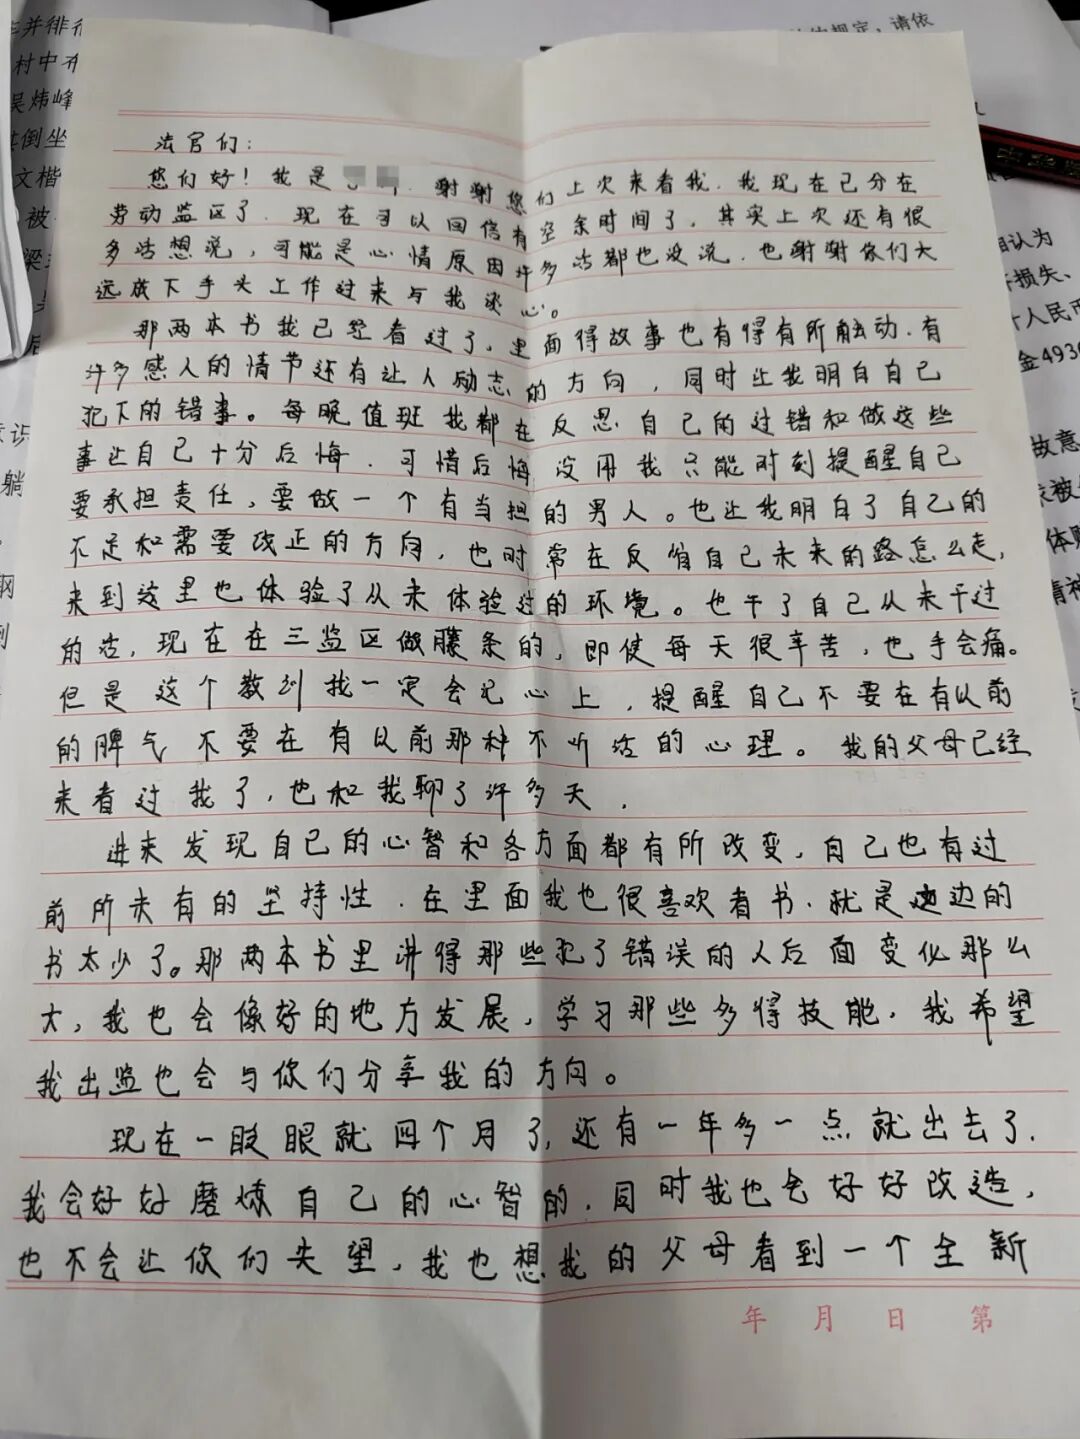 法官们：
您们好！我是 谢谢您们上次来看我．我现在已分在
劳动监区了．现在可以回信有空余时间了，其实上次还有很
多话想说，可能是心情原因许多话都也没说．也谢谢你们大
远放下手头工作过来与我谈心。
那两本书我已经看过了，里面得故事也有得有所触动．有
许多感人的情节还有让人励志的方向，同时让我明白自己
犯下的错事。每晚值班我都在反思自己的过错和做这些
事让自己十分后悔．可惜后悔没用我只能时刻提醒自己
要承担责任，要做一个有当担的男人。也让我明白了自己的
不足和需要改正的方向，也时常在反省自己未来的路怎么走，
来到这里也体验了从未体验过的环境。也干了自己从未干过
的活，现在在三监区做藤条的，即使每天很辛苦，也手会痛。
但是这个教训我一定会记心上，提醒自己不要在有以前
的脾气不要在有以前那种不听话的心理。我的父母已经
来看过我了，也和我聊了许多天．
进来发现自己的心智和各方面都有所改变，自己也有过
前所未有的坚持性．在里面我也很喜欢看书．就是边的
书太少了。那两本书里讲得那些犯了错误的人后面变化那么
大，我也会像好的地方发展，学习那些多得技能，我希望
我出监也会与你们分享我的方向。
现在一眨眼就四个月了，还有一年多一点就出去了．
我会好好磨炼自己的心智的．同时我也会好好改造，
也不会让你们失望，我也想我的父母看到一个全新
年 月 日 第
并徘徊
村中
吴炜峰
倒坐
文楷
被
梁
意识
躺
的规定，请依
认为
损失、
人民币
金4936
故意
被
体
精神